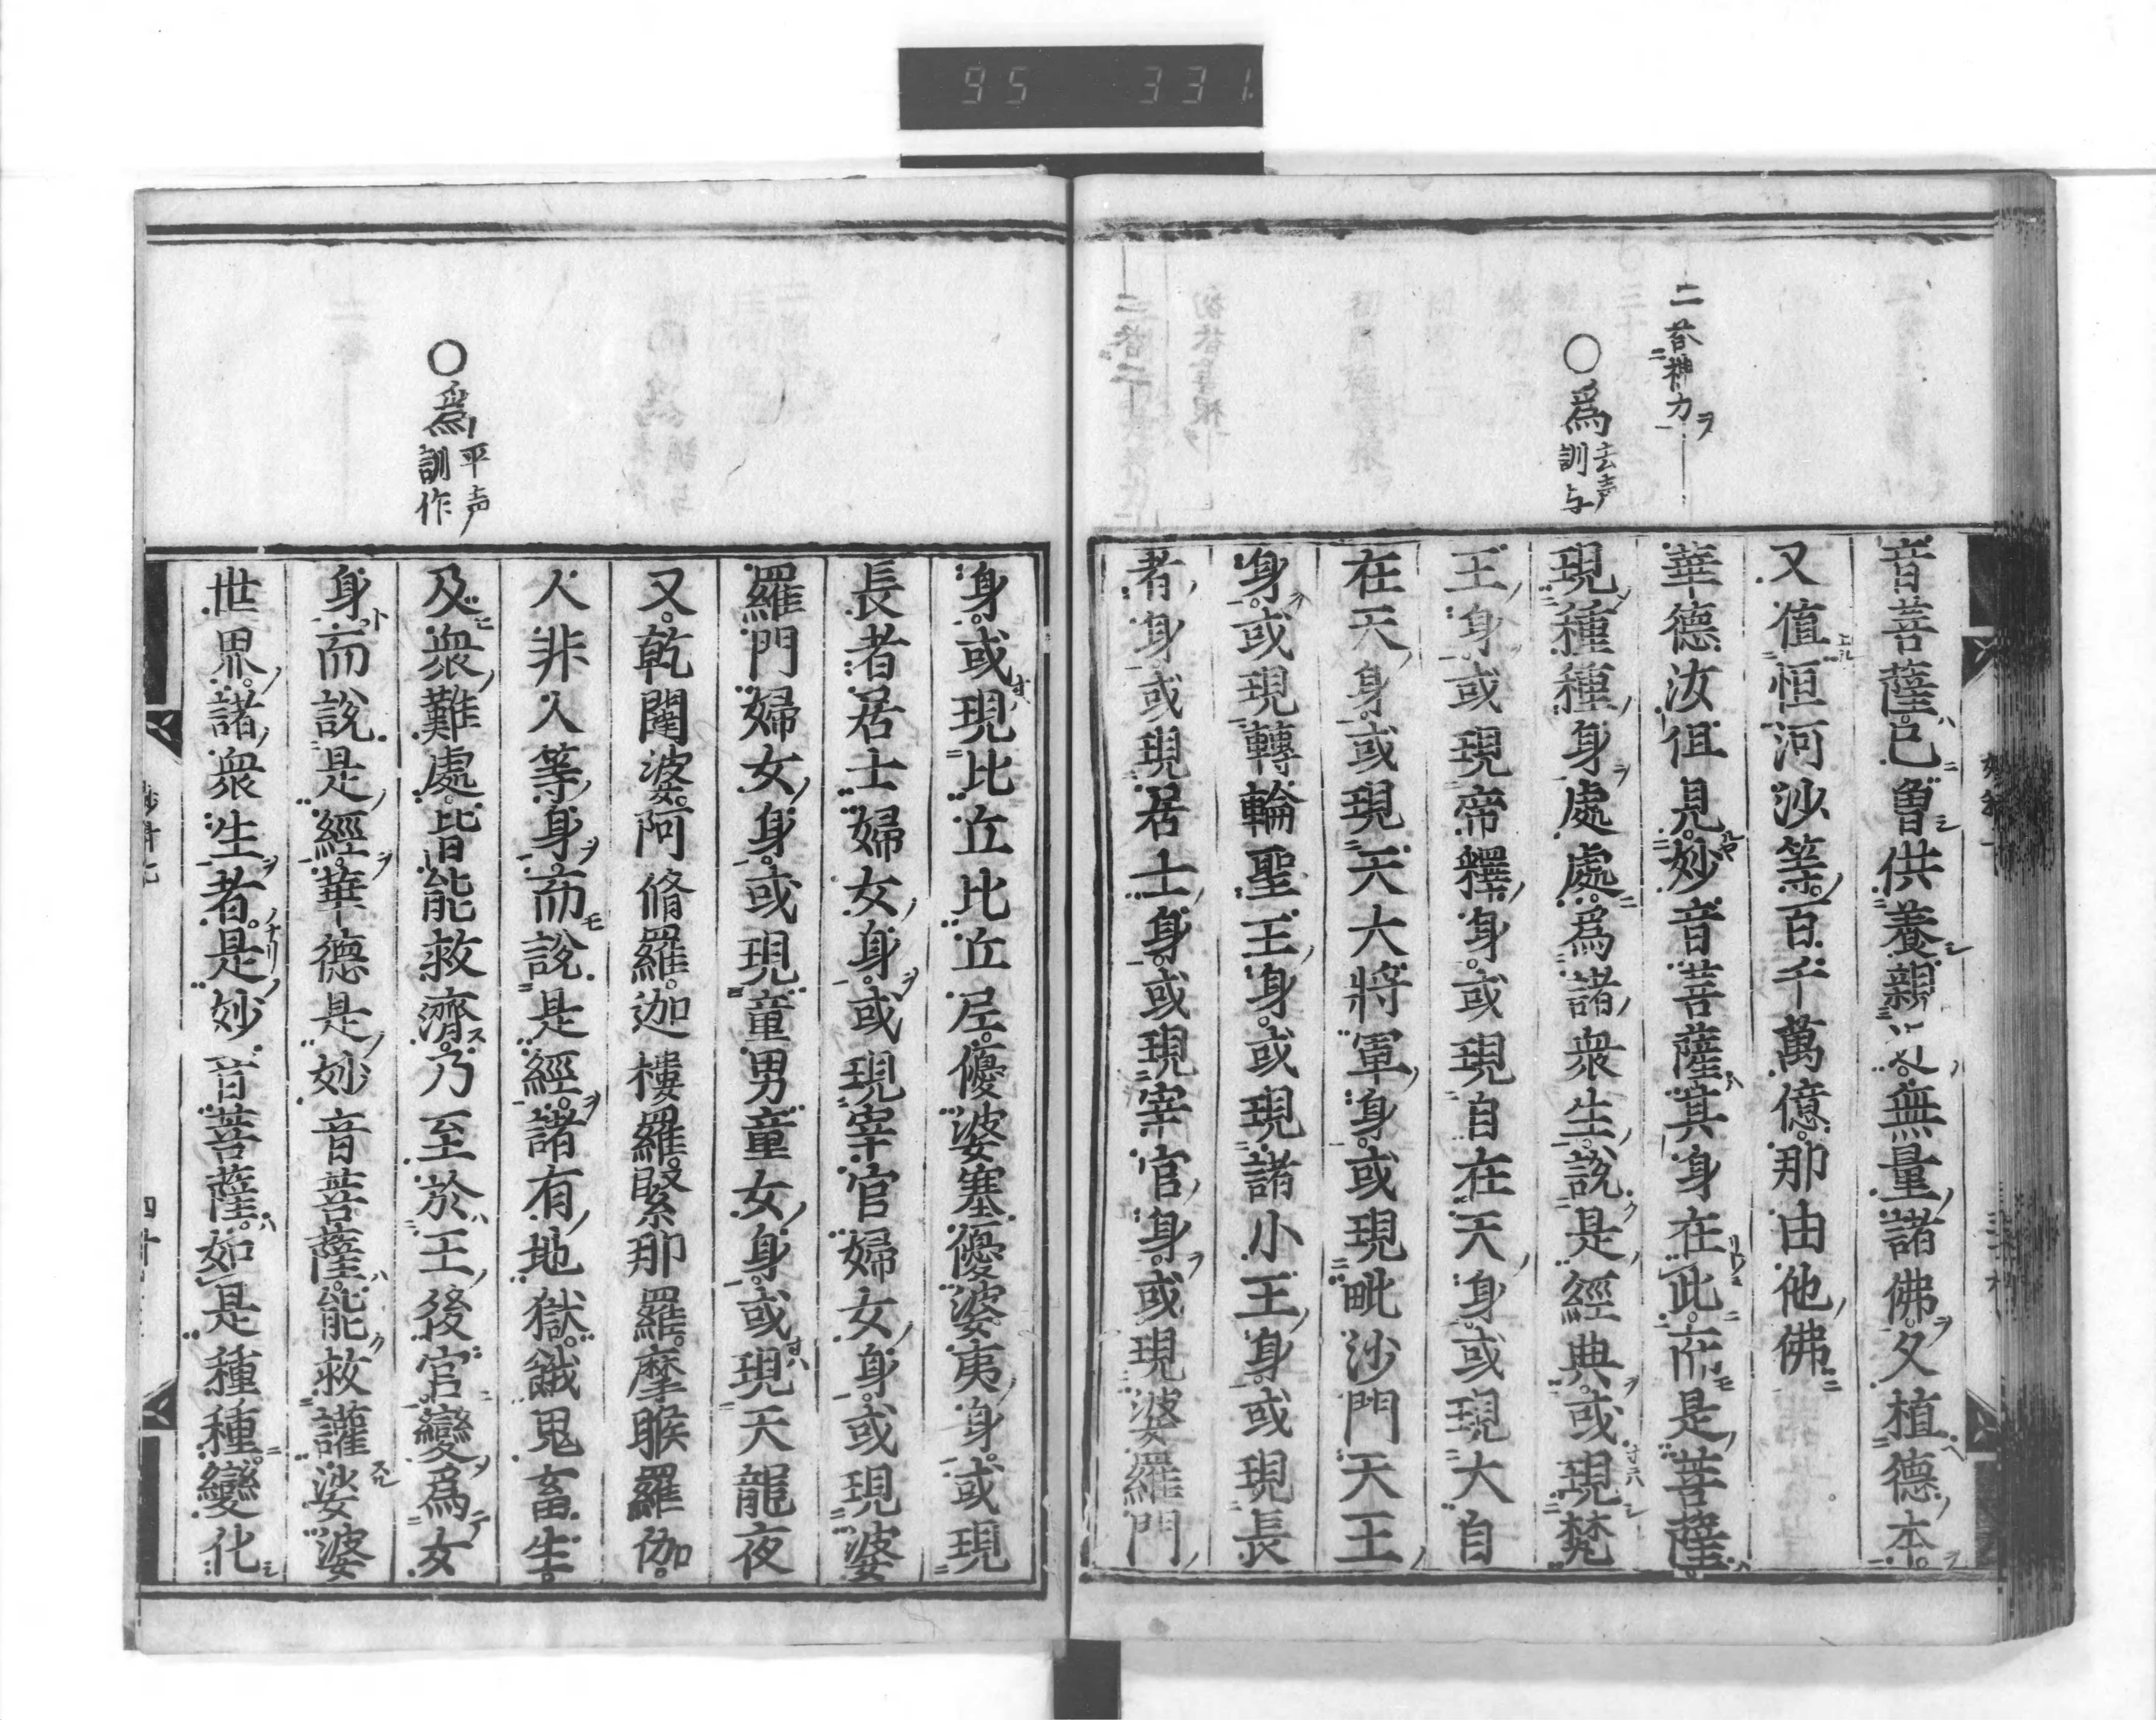 95 331
二荅神力
○爲去声訓与
音菩薩已曾供養親近無量諸佛久植德本
又値恒河沙等百千萬億那由他佛
華德汝但見妙音菩薩其身在此而是菩薩
現種種身處處爲諸衆生說是經典或現梵
王身或現帝釋身或現自在天身或現大自
在天身或現天大將軍身或現毗沙門天王
身或現轉輪聖王身或現諸小王身或現長
者身或現居士身或現宰官身或現婆羅門
○爲平声訓作
身或現比丘比丘尼優婆塞優婆夷身或現
長者居士婦女身或現宰官婦女身或現婆
羅門婦女身或現童男童女身或現天龍夜
叉乾闥婆阿脩羅迦樓羅緊那羅摩睺羅伽
人非人等身而說是經諸有地獄餓鬼畜生
及衆難處皆能救濟乃至於王後宮變爲女
身而說是經華德是妙音菩薩能救護娑婆
世界諸衆生者是妙音菩薩如是種種變化